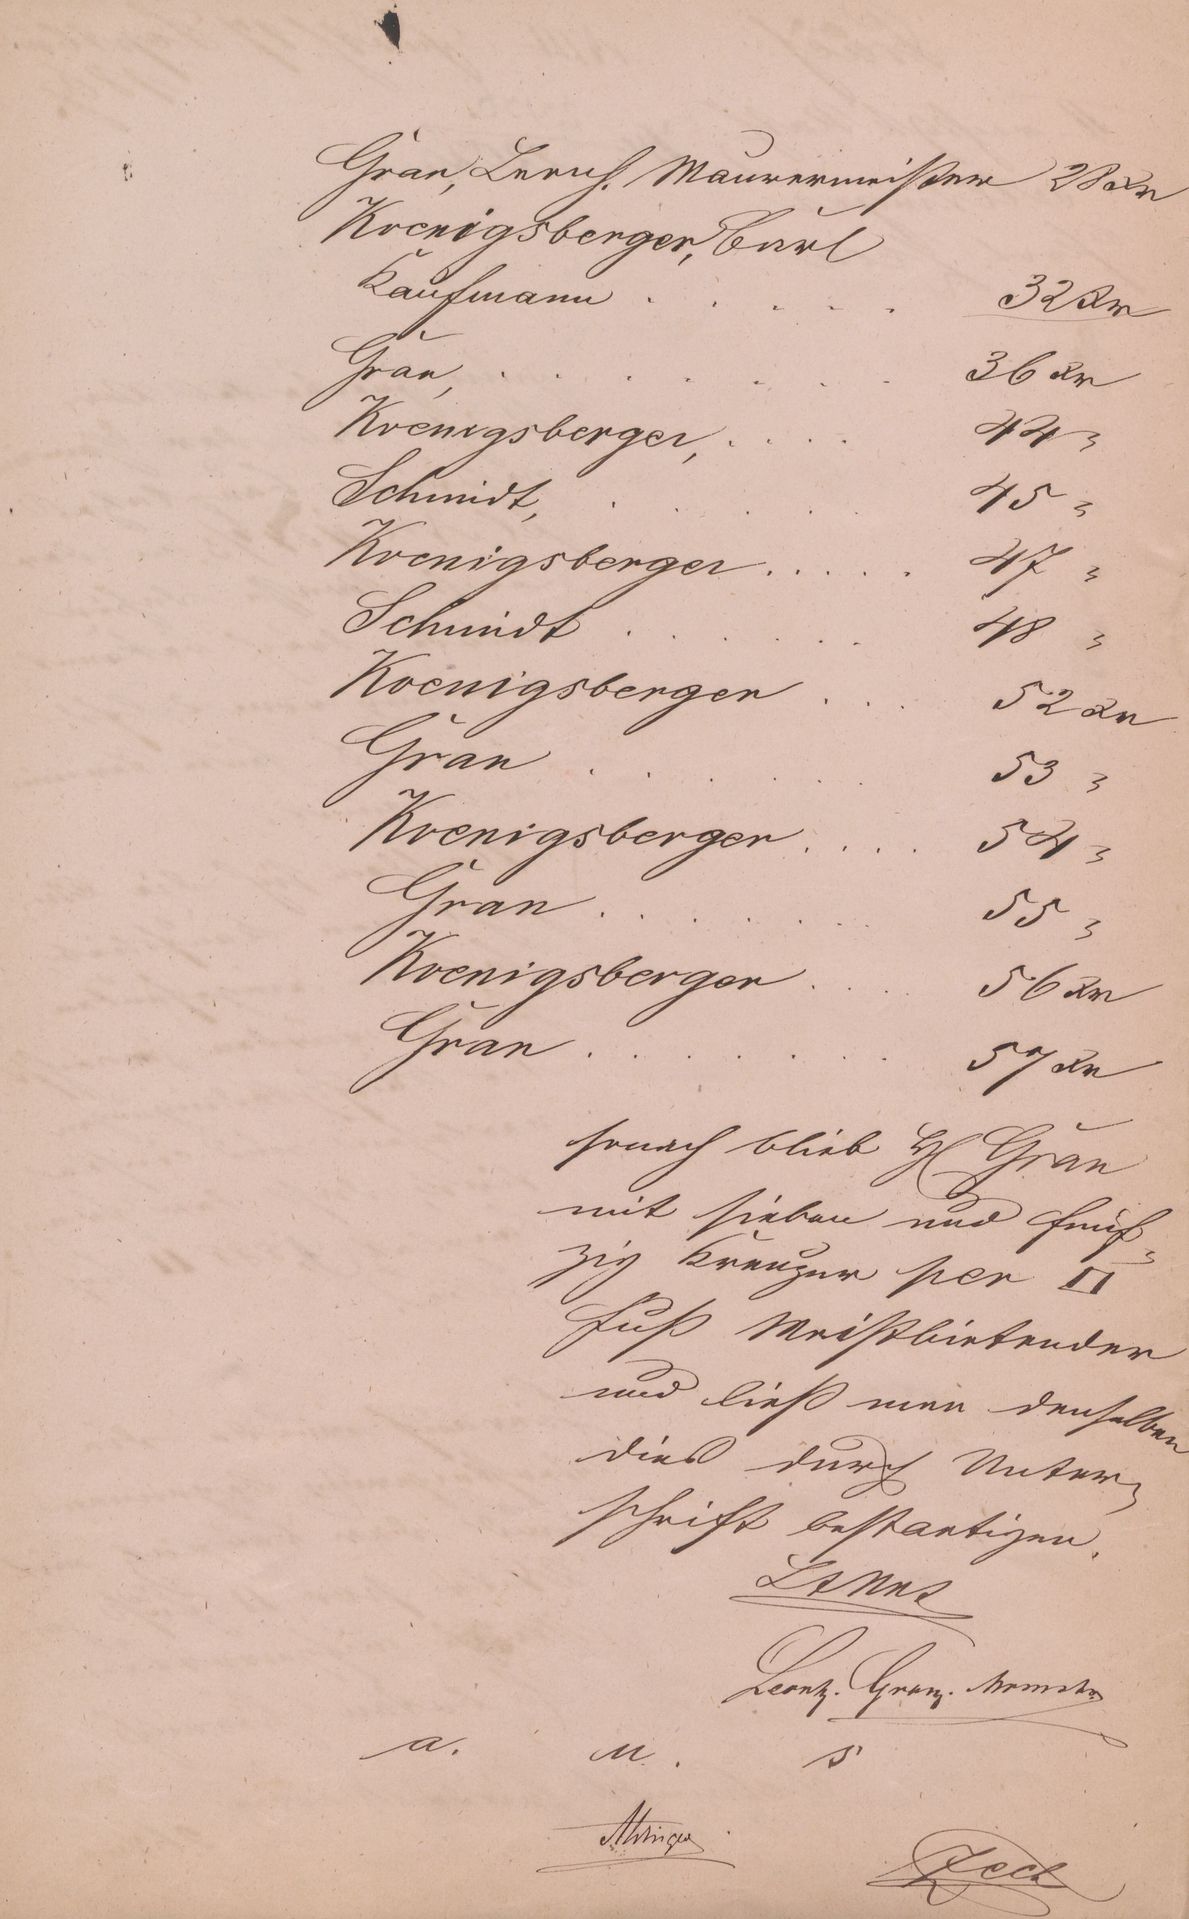 Gran, Leonh. Maurermeister 28 Xr
Koenigsberger, Carl
Kaufmann . . . . . 32 Xr
Gran, . . . . . . . 36 Xr
Koenigsberger, . . . . 44 "
Schmidt, . . . . . 45 "
Koenigsberger . . . . . 47 "
Schmidt . . . . . 48 "
Koenigsberger . . . 52 Xr
Gran . . . . . 53 "
Koenigsberger . . . . 54 "
Gran . . . . . . 55 "
Koenigsberger . . . 56 Xr
Gran . . . . . . . 57 Xr
sonach blieb H Gran
mit sieben und fünf=
zig Kreuzer per □
Fuß Meistbietender
und ließ man denselben
dies durch Unter=
schrift bestaetigen.
Leonh. Gran.
a. u. s
Zech